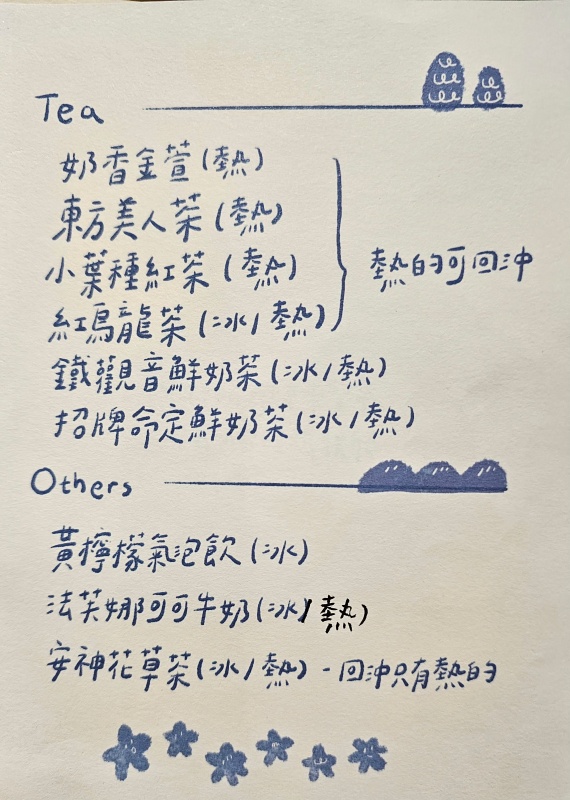 Tea
奶香金萱(熱)
東方美人茶(熱)
小葉種紅茶(熱)
紅烏龍茶(冰/熱)
熱的可回沖
鐵觀音鮮奶茶(冰/熱)
招牌命定鮮奶茶(冰/熱)
Others
黃檸檬氣泡飲(冰)
法芙娜可可牛奶(冰/熱)
安神花草茶(冰/熱)-回沖只有熱的